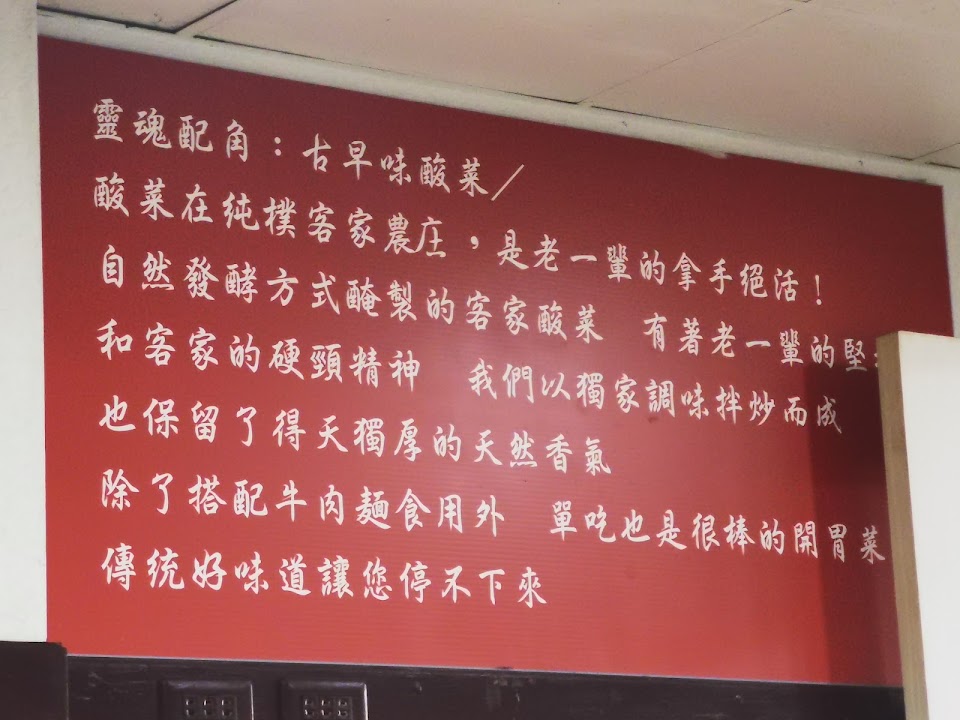 靈魂配角：古早味酸菜／
酸菜在純樸客家農庄，是老一輩的拿手絕活！
自然發酵方式醃製的客家酸菜　有著老一輩的堅
和客家的硬頸精神　我們以獨家調味拌炒而成
也保留了得天獨厚的天然香氣
除了搭配牛肉麵食用外　單吃也是很棒的開胃菜
傳統好味道讓您停不下來